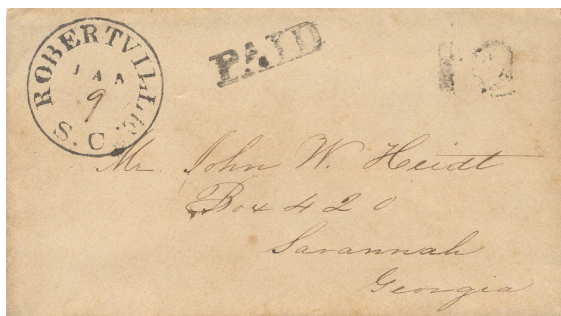 ROBERTVILLE
JAN
9
S.C.
PAID
Mr John W. Heidt
Box 420
Savannah
Georgia